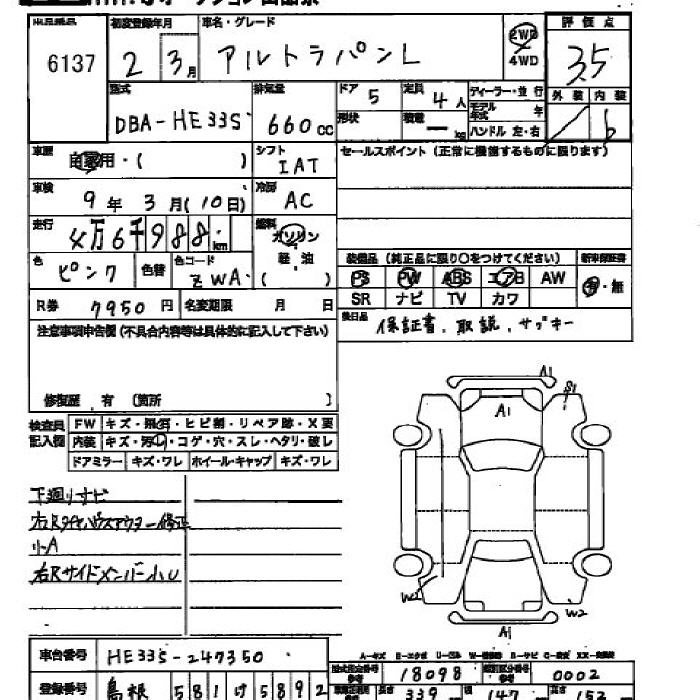 出品番号 初度登録年月 車名・グレード 評価点
6137 2 3月 アルトラパンL 2WD 4WD 3.5
型式 排気量 ドア 定員 ディーラー・並行 外装 内装
DBA-HE33S 660cc 5 4人 モデル年式 年 b
形状 積載 kg ハンドル 左・右
車歴 自家用・( ) シフト セールスポイント(正常に機能するものに限ります)
IAT
車検 9年3月(10日) 冷房 AC
走行 4万6千988km 燃料 ガソリン
色 ピンク 色替 色コード ZWA 軽油 ( )
装備品(純正品に限り○をつけてください) 新車保証書
PS PW ABS エアB AW 有・無
SR ナビ TV カワ
R券 7950円 名変期限 月 日
後日品 保証書、取説、サブキー
注意事項申告欄(不具合内容等は具体的に記入して下さい)
修復歴 有(箇所 )
検査員記入欄
FW キズ・飛石・ヒビ割・リペア跡・X要
内装 キズ・汚れ・コゲ・穴・スレ・ヘタリ・破レ
ドアミラー キズ・ワレ ホイール・キャップ キズ・ワレ
下廻りサビ
右Rタイヤハウスアウター修正
リ-A
右Rサイドメンバー小U
A1
S1
A1
W2
W2
A1
車台番号 HE33S-247350
18098 0002
登録番号 島根 581 け 5892
339 147 152